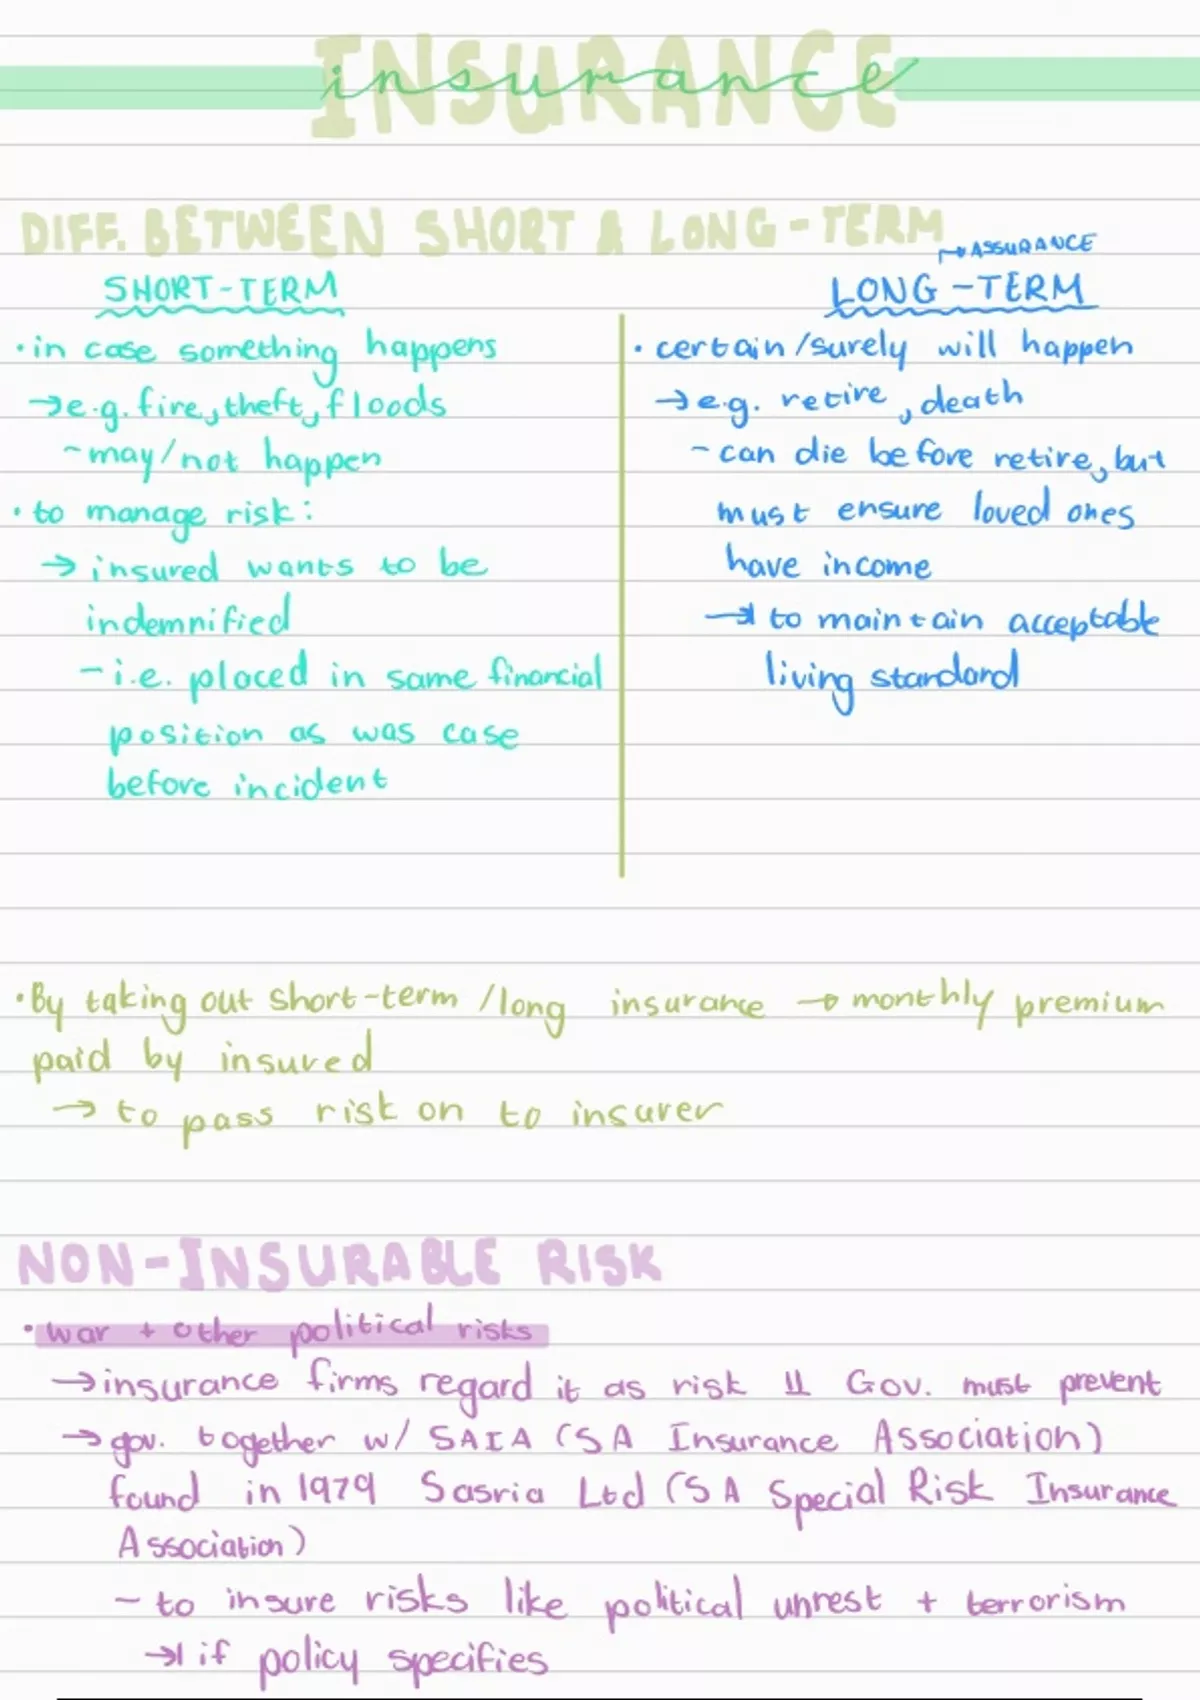 INSURANCE
insurance
DIFF. BETWEEN SHORT & LONG-TERM
→ ASSURANCE
SHORT-TERM
• in case something happens
→ e.g. fire, theft, floods
- may/not happen
• to manage risk:
→ insured wants to be
indemnified
- i.e. placed in same financial
position as was case
before incident
LONG-TERM
• certain/surely will happen
→ e.g. retire, death
- can die before retire, but
must ensure loved ones
have income
→ to maintain acceptable
living standard
• By taking out short-term/long insurance → monthly premium
paid by insured
→ to pass risk on to insurer
NON-INSURABLE RISK
• war + other political risks
→ insurance firms regard it as risk Gov. must prevent
→ gov. together w/ SAIA (SA Insurance Association)
found in 1979 Sasria Ltd (SA Special Risk Insurance
Association)
- to insure risks like political unrest + terrorism
→ if policy specifies